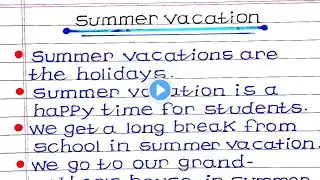 Summer vacation
• Summer vacations are
the holidays.
• Summer vacation is a
happy time for students.
• We get a long break from
school in summer vacation.
• We go to our grand-
house in summer